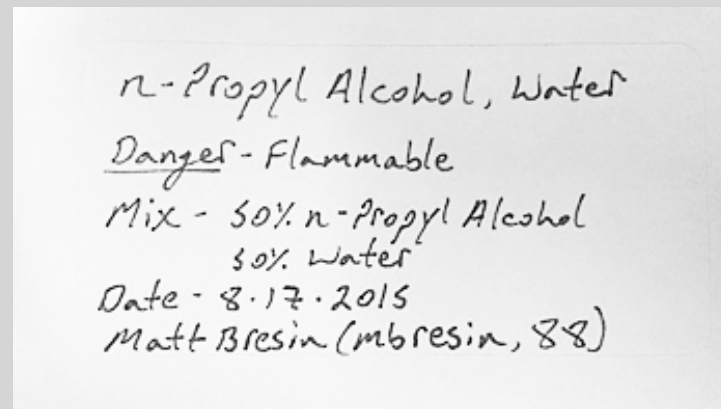 n-Propyl Alcohol, Water
Danger - Flammable
Mix - 50% n-Propyl Alcohol
50% Water
Date - 8.17.2015
Matt Bresin (mbresin, 88)